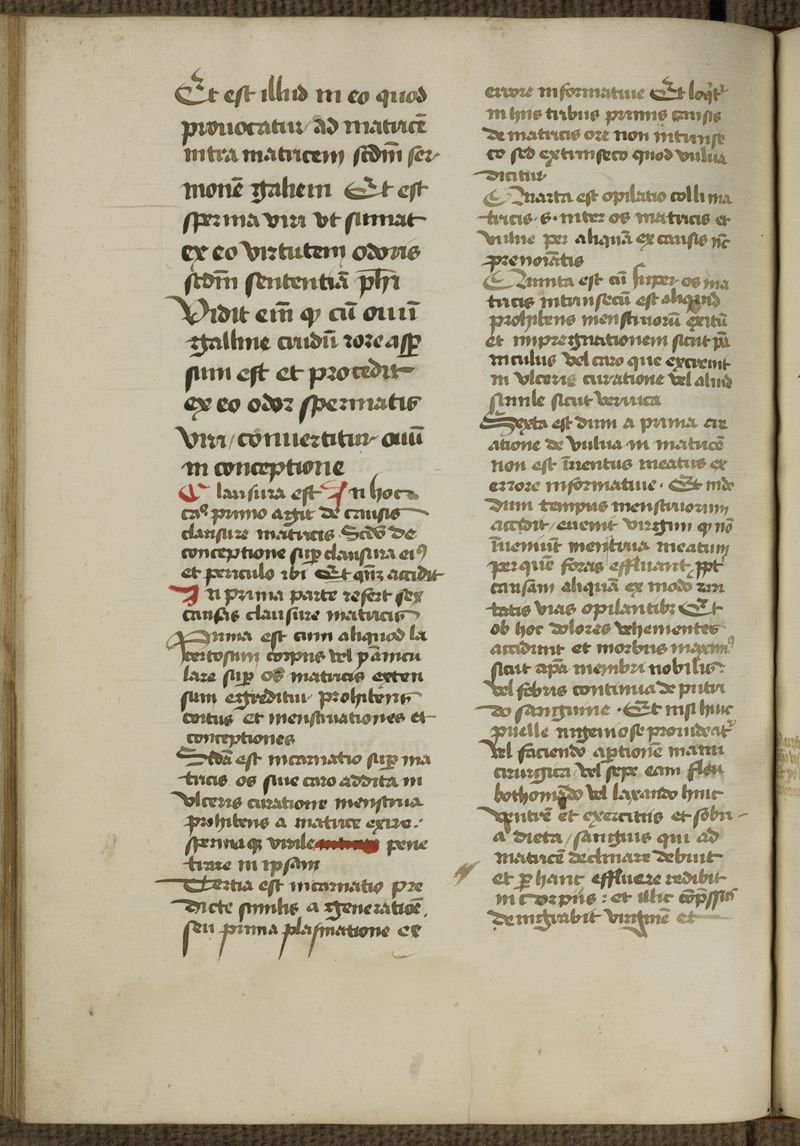 Et est illud in eo quod
prouocatur ad matricē
intra matricem scdm̄ ser-
monē galieni Et est
sperma viri vt sumat
ex eo virtutem odoris
scdm̄ sententiā phi
Vidit em̄ ꝙ cū ouū
galline crudū rore asꝑ
sum est et procedit
ex eo odor spermatis
viri / conuertitur ouū
in conceptione
Clausura est In hoc
caº primo agit de causis
clausure matricis Scdº de
conceptione suꝑ clausura eiꝰ
et periculo ibi Et qn̄qꝫ accidit
In prima parte refert sex
causas clausure matricis
Prima est cum aliquod la
certosum corpus vel pāincu
lare suꝑ os matricis exten
sum egreditur prohibens
coitus et menstruationes et
conceptiones
Scdā est incarnatio suꝑ ma
tricis os siue caro addita in
vlceris curatione menstrua
prohibens a matrice exire.
spermaqꝫ virile pene
trare in ipsam
Tertia est incarnatio pre
dicte similis a generatiōe,
seu prima plasmatione ex
errore informatiue Et loqr̄
in hiis tribus primis causis
de matricis ore non intrinse
co sed extrinseco quod vulua
dicitur
Quarta est opilatio colli ma
tricis .s. inter os matricis et
vulue per aliquā ex causis nc̄
prenoīatis
Quinta est cū super os ma
tricis intrinsecū est aliquid
prohibens menstruorū exitū
et impregnationem sicut pā
niculus vel caro que excreuit
in vlceris curatione vel aliud
simile sicut verruca
Sexta est dum a prima cre
atione de vulua in matricē
non est īuentus meatus ex
errore informatiue . Et inde
dum tempus menstruorum
accidit / euenit virgini ꝙ nō
īueniūt menstrua meatum
per quē foras effluant ꝓpt
causam aliquā ex modo
tatis vias opilantibꝫ Et
ob hoc dolores vehementes
accidunt et morbus maximꝰ
sicut apā membri nobilis
vel febris continua de putri
do sanguine . Et nisi huic
puelle ingeniose prouideat
vel faciendo aꝑtionē manu
cirurgica vel sepe eam fleu
bothomādo vel laxando huic
ventrē et exercitiis et sobri-
a dieta / sanguis qui ad
matricē declinare debuit
et ꝑ hanc effluere redibit
in corpus : et illic
denigrabit virginē et